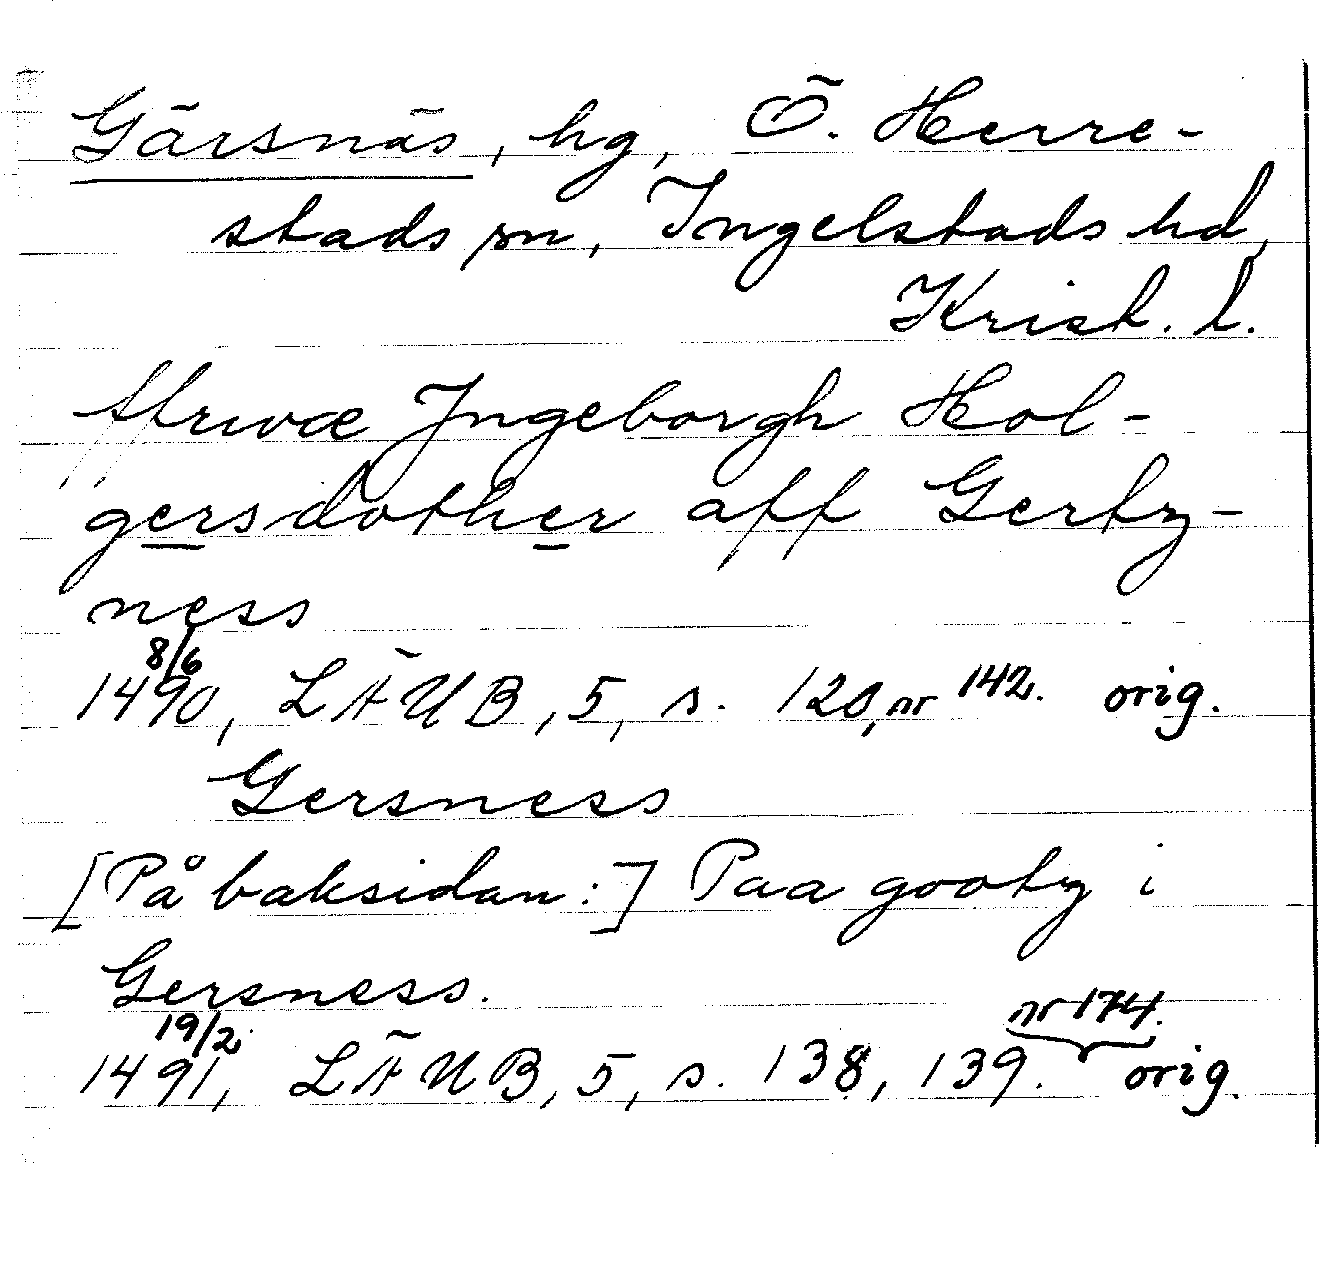 Gärsnäs, hg, Ö. Herre-
stads sn, Ingelstads hd,
Krist. l.
ffrwæ Jngeborgh Hol-
gersdother aff Gertz-
ness
8/6
1490, LÄUB, 5, s. 120, nr 142. orig.
Gersness
[På baksidan:] Paa gootz i
Gersness.
19/2 nr 174.
1491, LÄUB, 5, s. 138, 139. orig.